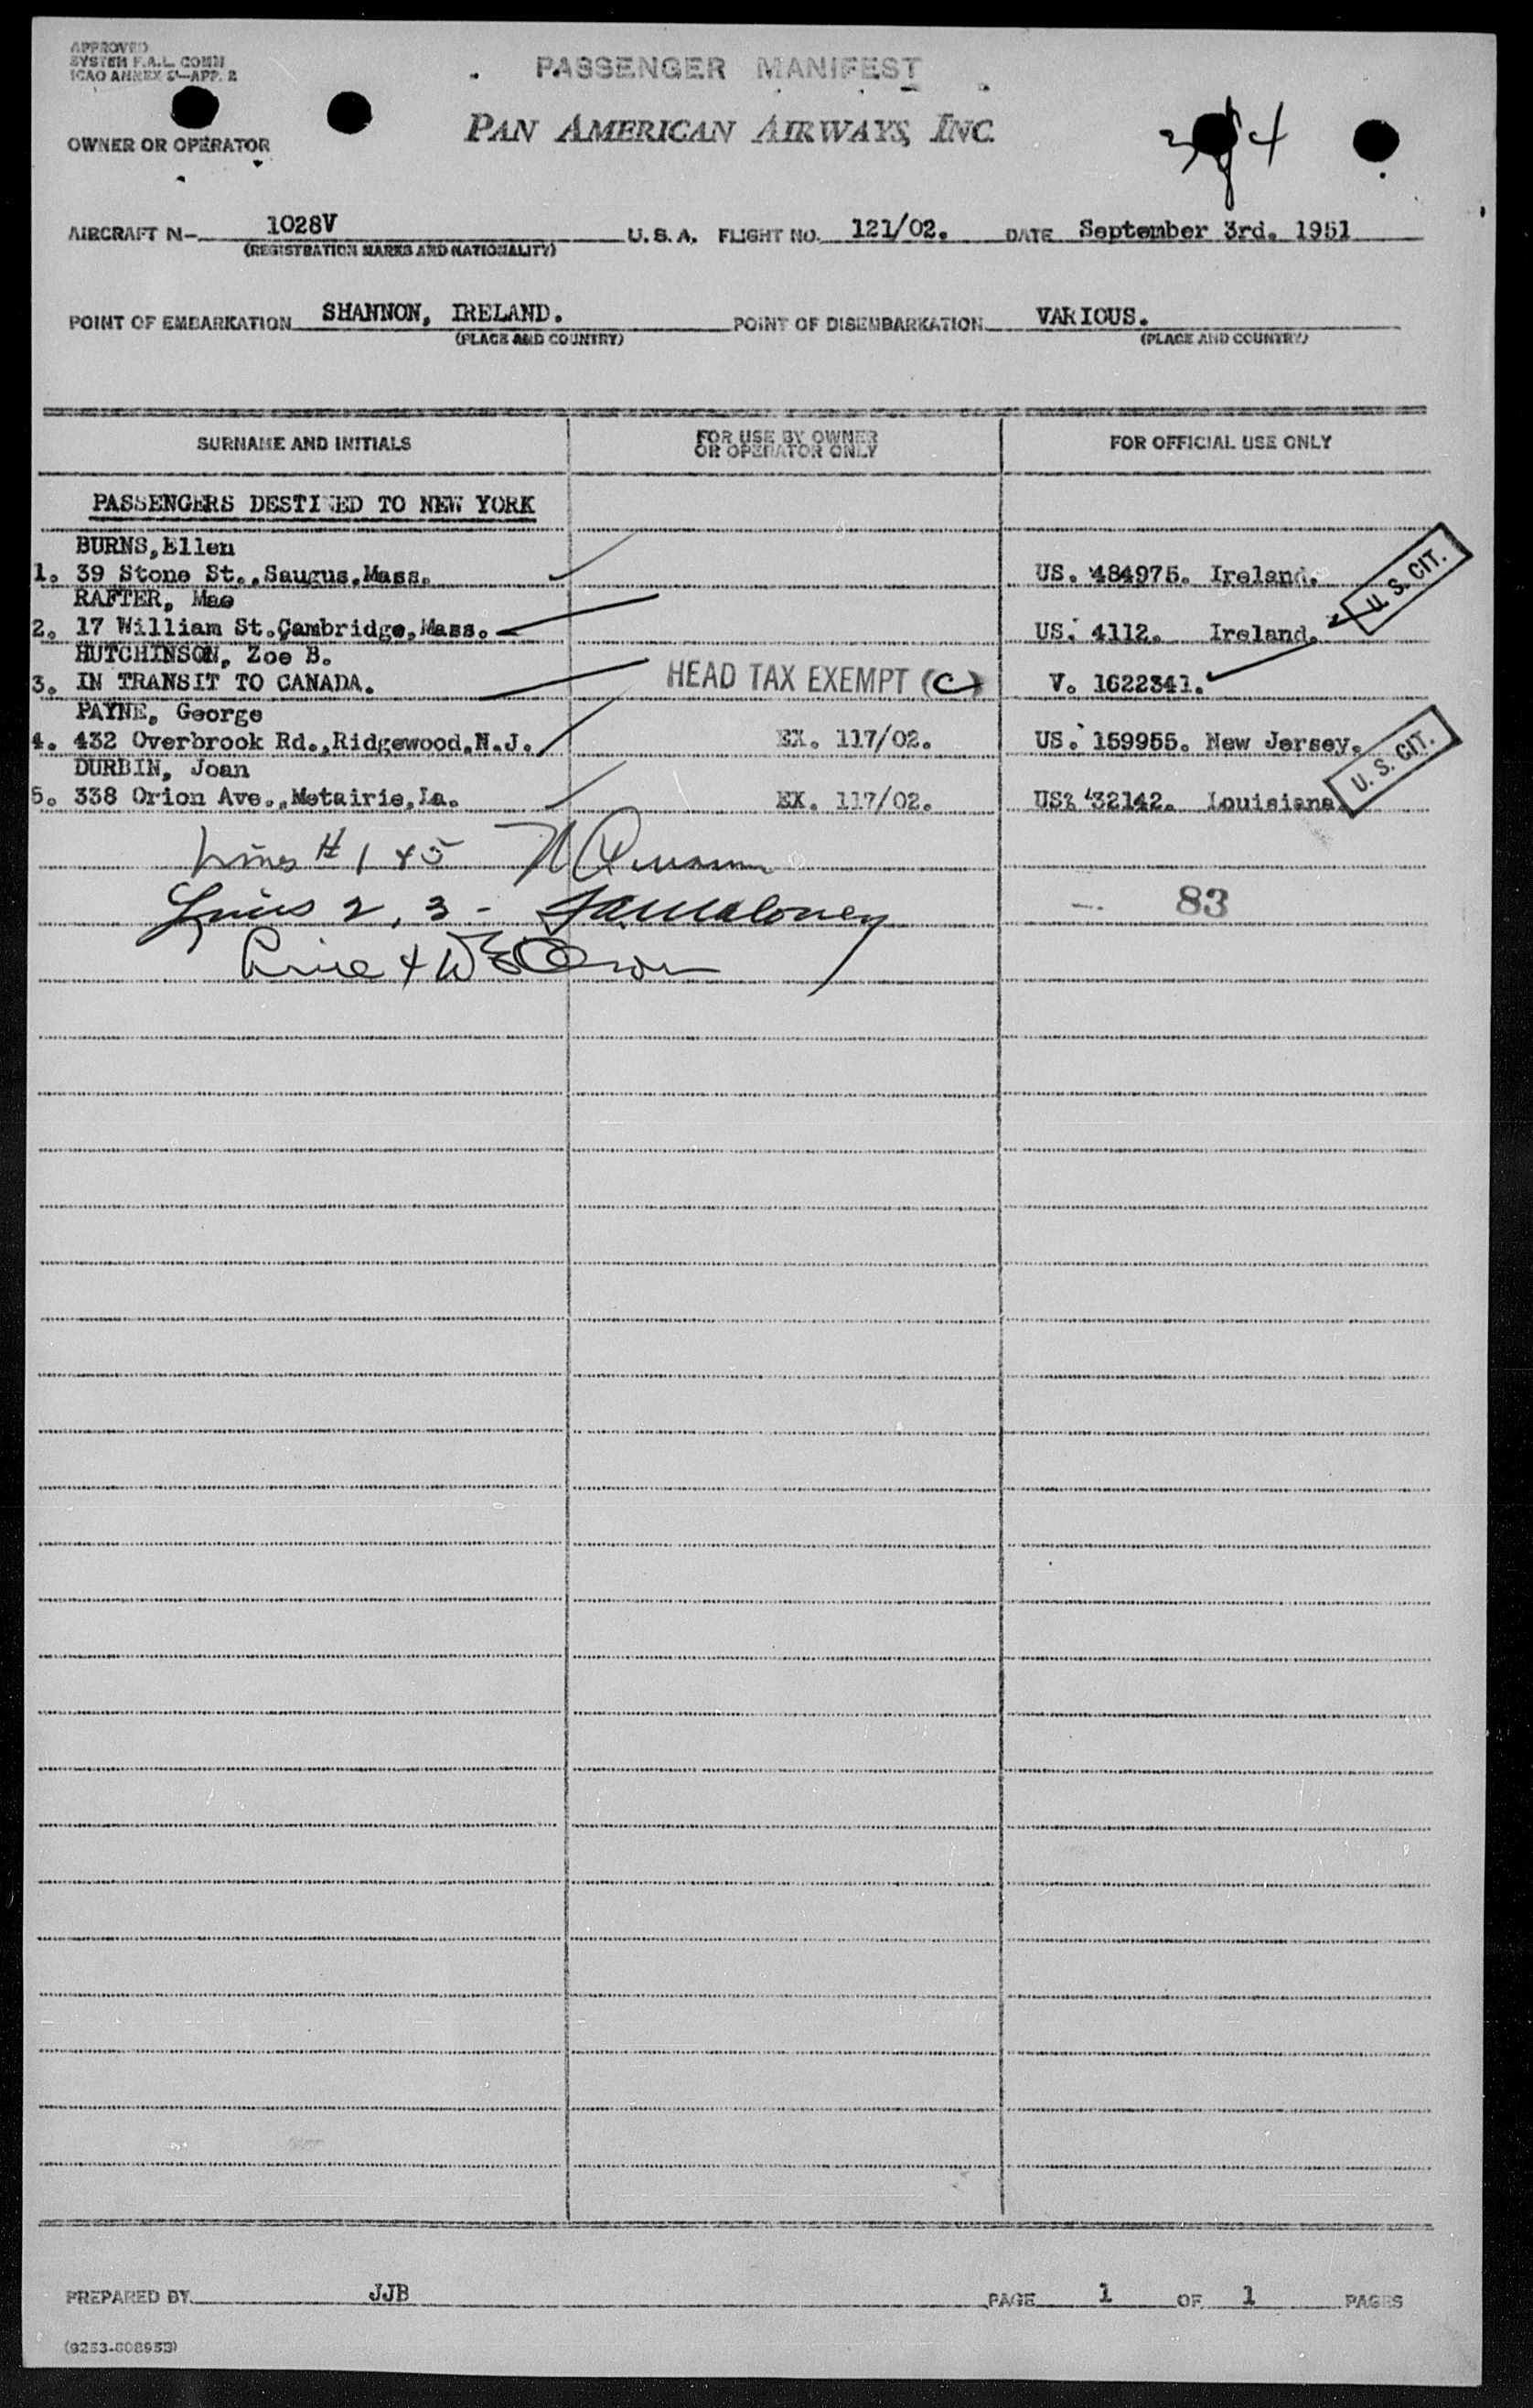 APPROVED
SYSTEM F.A.L. COMM
ICAO ANNEX 9—APP. 2
PASSENGER MANIFEST
OWNER OR OPERATOR
PAN AMERICAN AIRWAYS, INC.
4
AIRCRAFT N- 1028V U.S.A. FLIGHT NO. 121/02. DATE September 3rd. 1951
(REGISTRATION MARKS AND NATIONALITY)
POINT OF EMBARKATION SHANNON, IRELAND. POINT OF DISEMBARKATION VARIOUS.
(PLACE AND COUNTRY) (PLACE AND COUNTRY)
SURNAME AND INITIALS FOR USE BY OWNER OR OPERATOR ONLY FOR OFFICIAL USE ONLY
PASSENGERS DESTI ED TO NEW YORK
BURNS,Ellen
1. 39 Stone St.,Saugus,Mass. US. 484975. Ireland.
U. S. CIT.
RAFTER, Mae
2. 17 William St.Cambridge,Mass. US. 4112. Ireland.
HUTCHINSON, Zoe B.
3. IN TRANSIT TO CANADA. HEAD TAX EXEMPT (C) V. 1622341.
PAYNE, George
4. 432 Overbrook Rd.,Ridgewood,N.J. EX. 117/02. US. 159955. New Jersey.
U. S. CIT.
DURBIN, Joan
5. 338 Orion Ave.,Metairie,La. EX. 117/02. US. 432142. Louisiana.
Lines # 1 + 5
Lines 2, 3 - Maloney
83
Line 4
PREPARED BY JJB PAGE 1 OF 1 PAGES